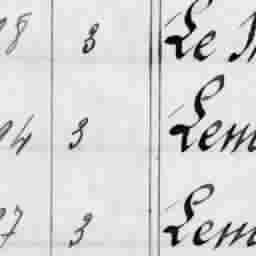 98 3 Le
94 3 Lem
97 3 Lem